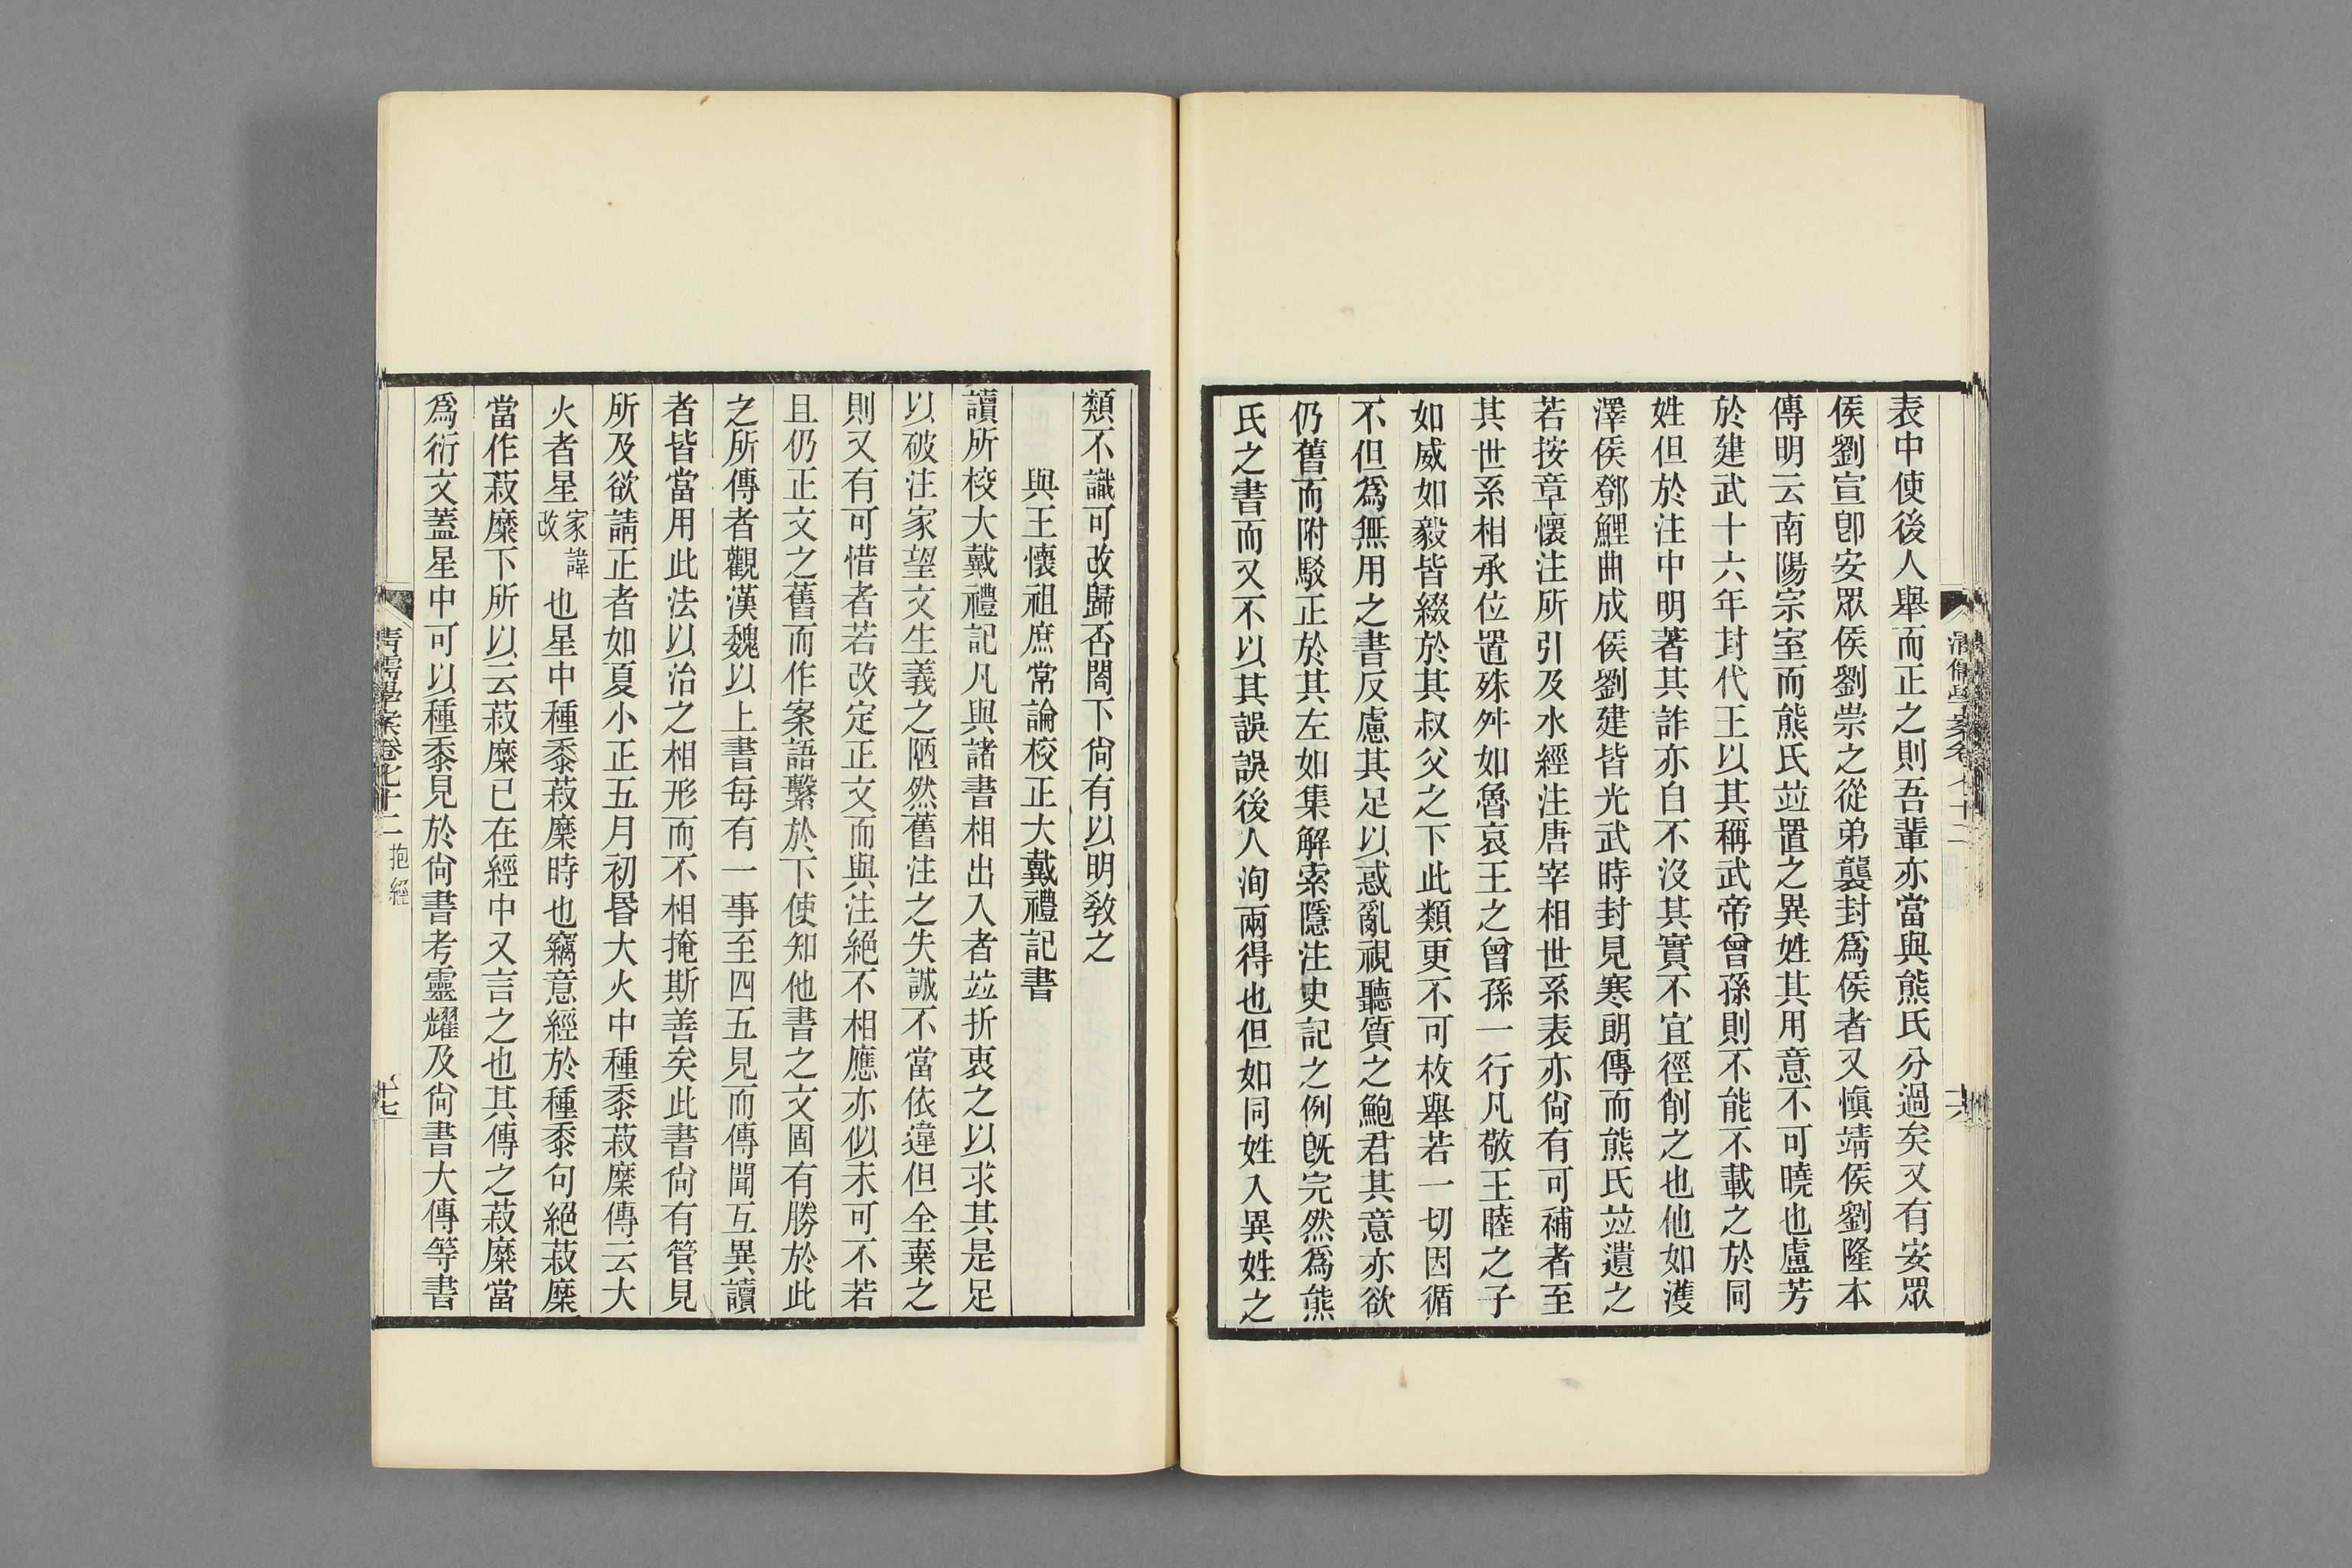 表中使後人舉而正之則吾輩亦當與熊氏分過矣又有安眾
侯劉宣卽安眾侯劉崇之從弟襲封爲侯者又愼靖侯劉隆本
傳明云南陽宗室而熊氏竝置之異姓其用意不可曉也盧芳
於建武十六年封代王以其稱武帝曾孫則不能不載之於同
姓但於注中明著其詐亦自不沒其實不宜徑削之也他如濩
澤侯鄧鯉曲成侯劉建皆光武時封見寒朗傳而熊氏竝遺之
若按章懷注所引及水經注唐宰相世系表亦尙有可補者至
其世系相承位置殊舛如魯哀王之曾孫一行凡敬王睦之子
如威如毅皆綴於其叔父之下此類更不可枚舉若一切因循
不但爲無用之書反慮其足以惑亂視聽質之鮑君其意亦欲
仍舊而附駁正於其左如集解索隱注史記之例旣完然爲熊
氏之書而又不以其誤誤後人洵兩得也但如同姓入異姓之
清儒學案卷七十二
十六
類不識可改歸否閣下尙有以明敎之
與王懷祖庶常論校正大戴禮記書
讀所校大戴禮記凡與諸書相出入者竝折衷之以求其是足
以破注家望文生義之陋然舊注之失誠不當依違但全棄之
則又有可惜者若改定正文而與注絕不相應亦似未可不若
且仍正文之舊而作案語繫於下使知他書之文固有勝於此
之所傳者觀漢魏以上書每有一事至四五見而傳聞互異讀
者皆當用此法以治之相形而不相掩斯善矣此書尙有管見
所及欲請正者如夏小正五月初昏大火中種黍菽糜傳云大
火者星家諱改也星中種黍菽糜時也竊意經於種黍句絕菽糜
當作菽糜下所以云菽糜已在經中又言之也其傳之菽糜當
爲衍文蓋星中可以種黍見於尙書考靈耀及尙書大傳等書
清儒學案卷七十二 抱經
十七